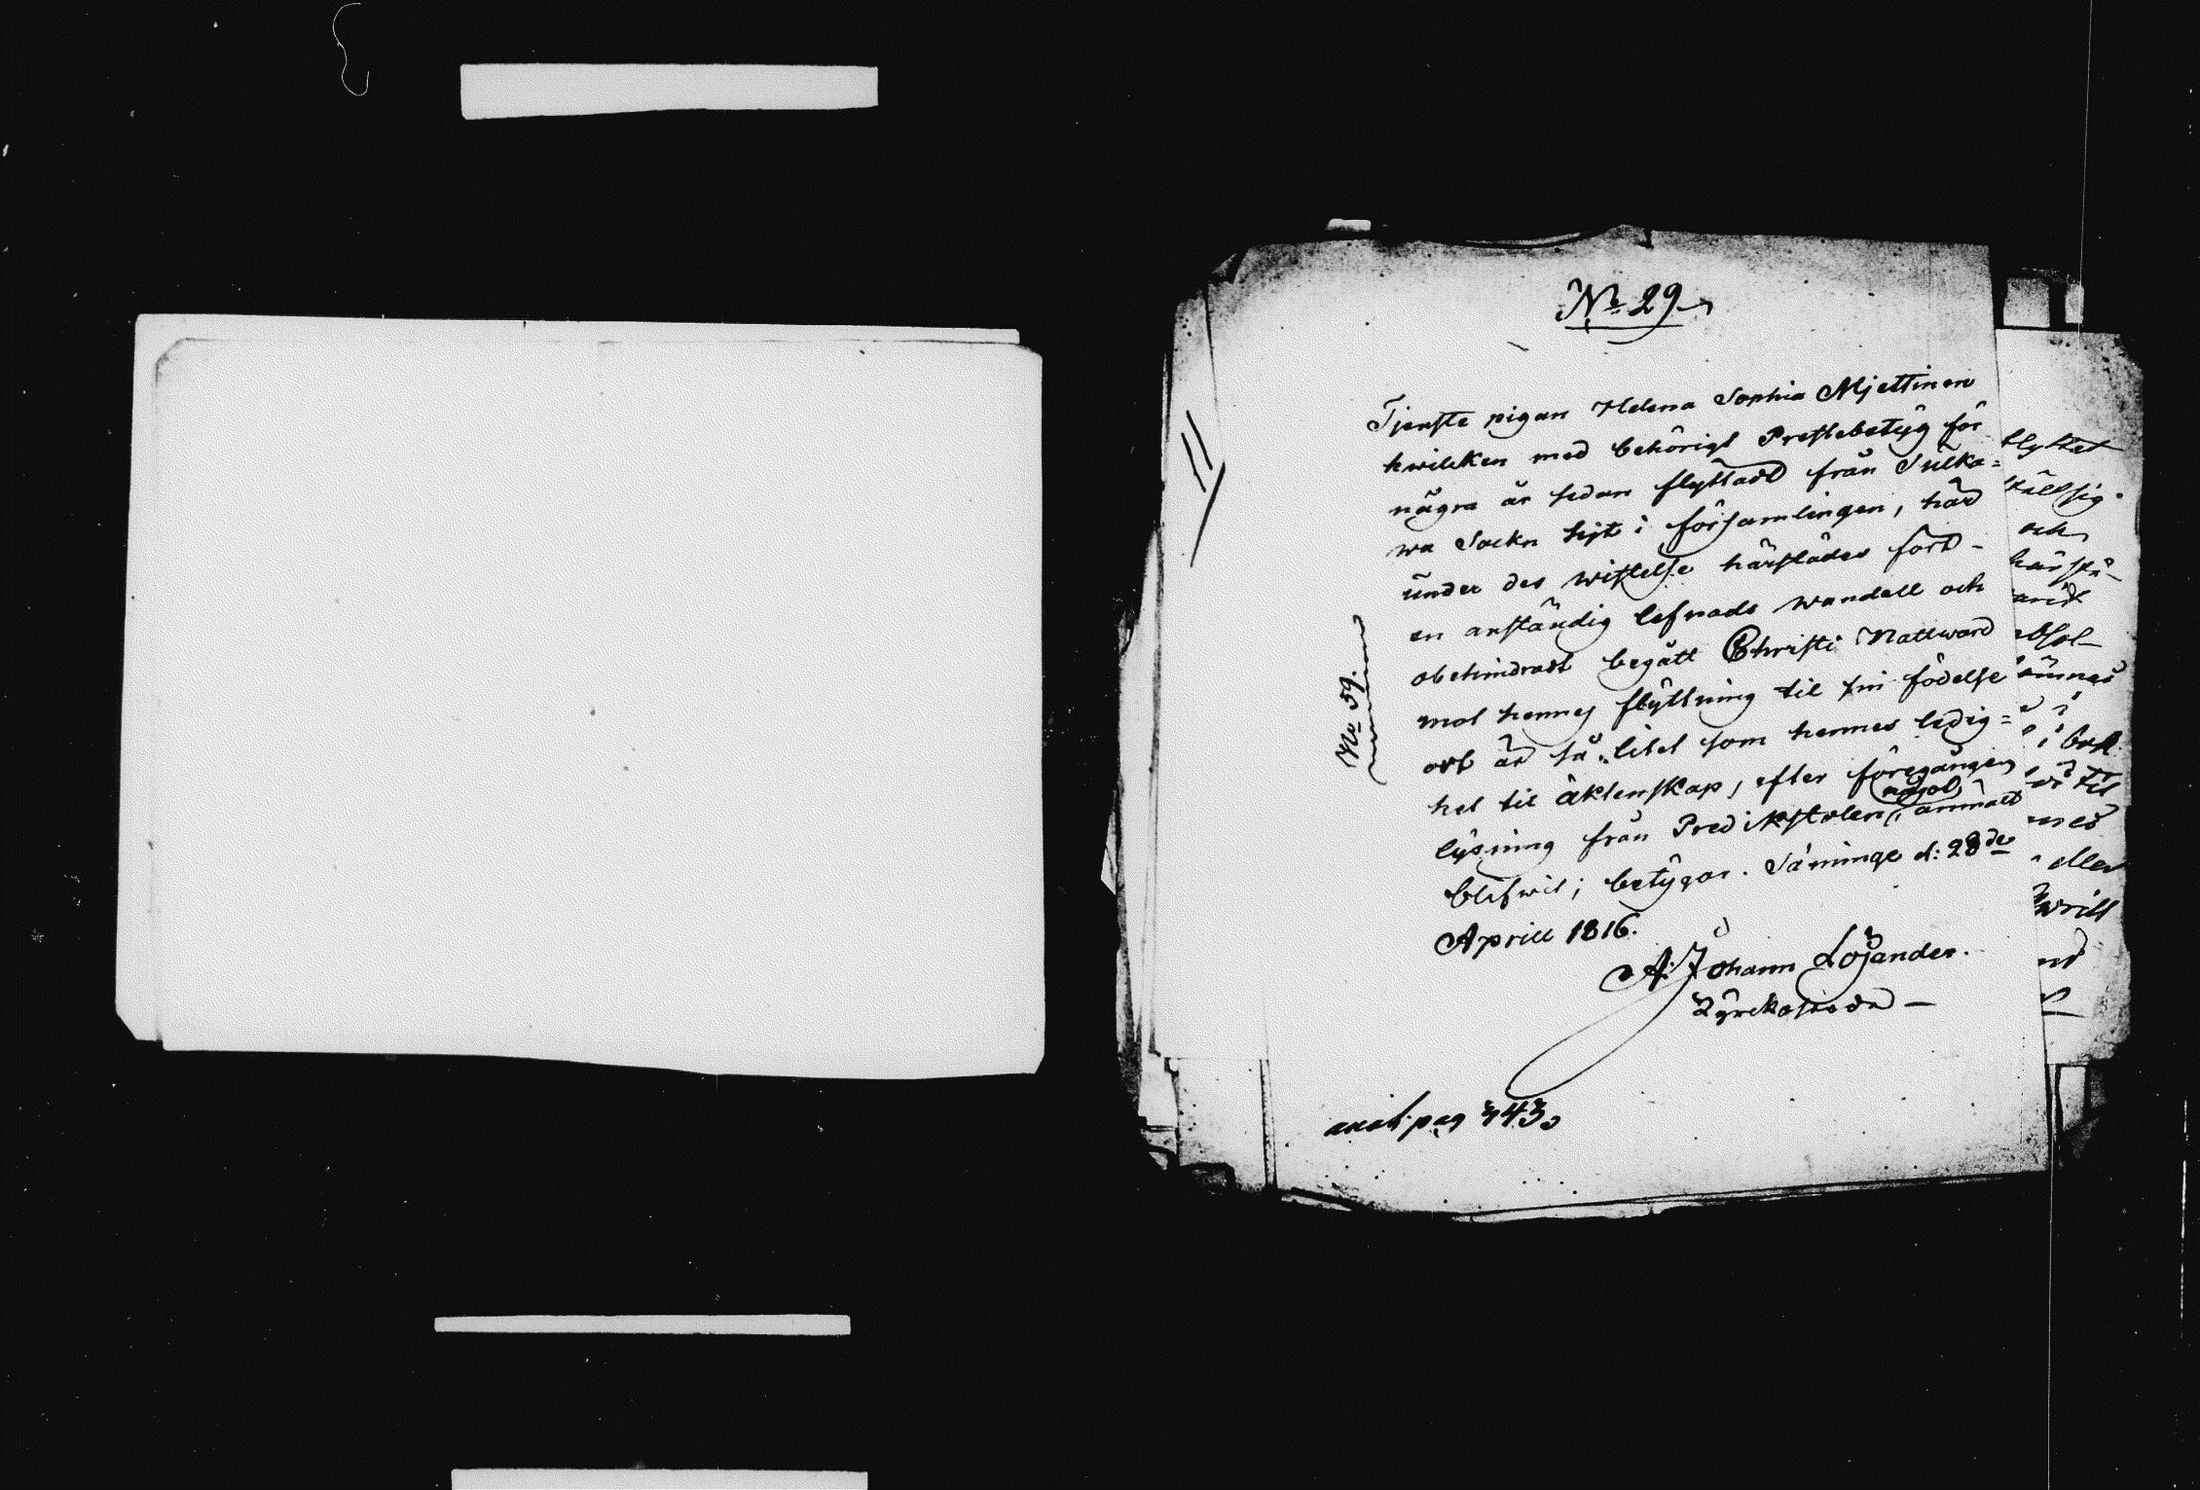 No 29
Tjenste pigan Helena Sophia Mjettinen
hwilcken med behörigt Prestebetÿg för
några år sedan flÿttadt från Sulka=
wa Sockn hijt i församlingen, har
under des wistelse härstädes fört
en anständig lefnads wandell och
obehindradt begått Christi Nattward
mot hennes flÿttning til sin födelse
ort är så litet som hennes ledig=
het til äktenskap, efter föregången
lÿsning från Predikstolen, något anmält
blifwit; betÿgar. Säminge d: 28de
Aprill 1816.
A. Johann Lojander.
Kÿrckoherde
No 59.
11
anot. pag 343
flyttat
och
härstä-
absol-
i
eller